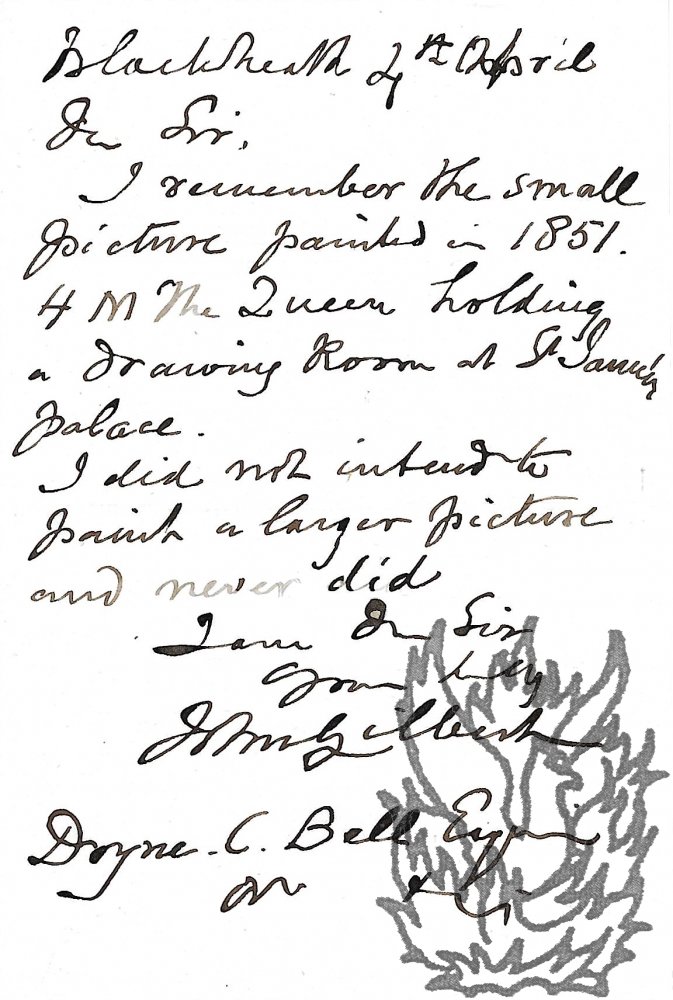 Blackheath 4th April
Dr Sir,
I remember the small
picture painted in 1851.
H M The Queen holding
a Drawing Room at St James's
palace.
I did not intend to
paint a larger picture
and never did
I am Dr Sir
Yours truly
John Gilbert
Doyne. C. Bell Esquire